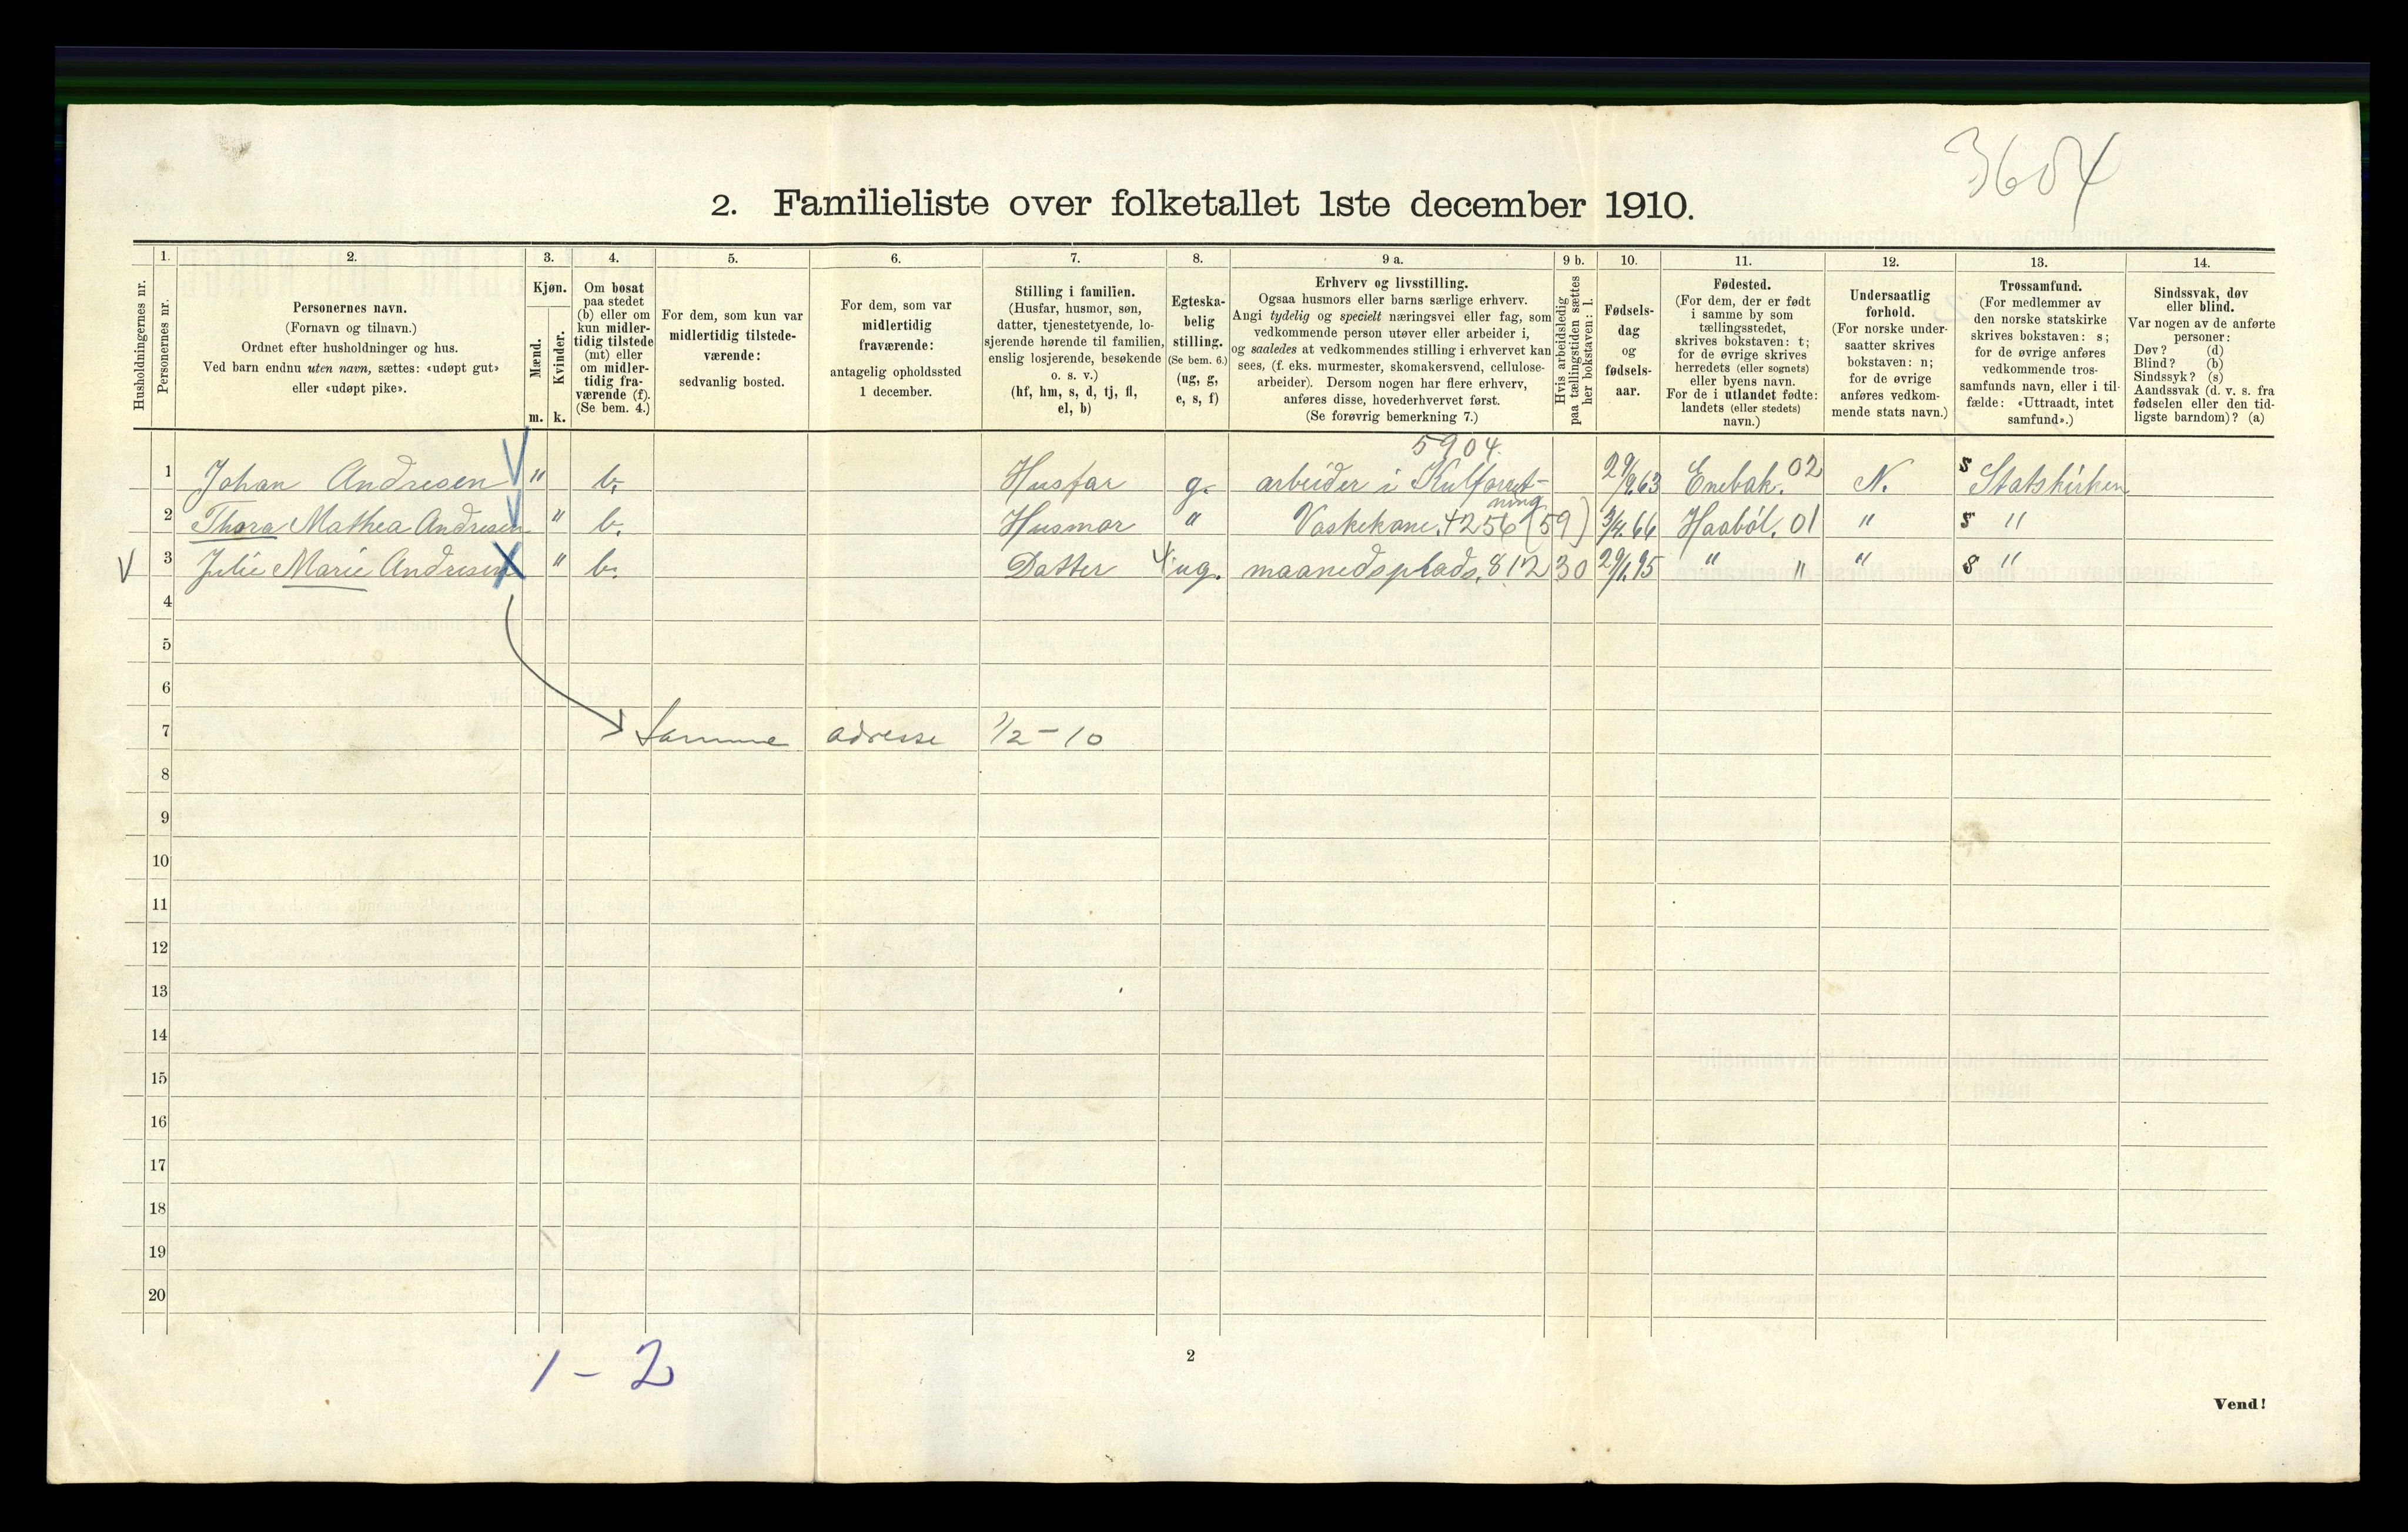 3604
2. Familieliste over folketallet 1ste december 1910.
1. 2. 3. 4. 5. 6. 7. 8. 9 a. 9 b. 10. 11. 12. 13. 14.
Husholdningernes nr.
Personernes nr.
Personernes navn.
(Fornavn og tilnavn.)
Ordnet efter husholdninger og hus.
Ved barn endnu uten navn, sættes: «udøpt gut»
eller «udøpt pike».
Kjøn.
Mænd.
m.
Kvinder.
k.
Om bosat
paa stedet
(b) eller om
kun midler-
tidig tilstede
(mt) eller
om midler-
tidig fra-
værende (f).
(Se bem. 4.)
For dem, som kun var
midlertidig tilstede-
værende:
sedvanlig bosted.
For dem, som var
midlertidig
fraværende:
antagelig opholdssted
1 december.
Stilling i familien.
(Husfar, husmor, søn,
datter, tjenestetyende, lo-
sjerende hørende til familien,
enslig losjerende, besøkende
o. s. v.)
(hf, hm, s, d, tj, fl,
el, b)
Egteska-
belig
stilling.
(Se bem. 6.)
(ug, g,
e, s, f)
Erhverv og livsstilling.
Ogsaa husmors eller barns særlige erhverv.
Angi tydelig og specielt næringsvei eller fag, som
vedkommende person utøver eller arbeider i,
og saaledes at vedkommendes stilling i erhvervet kan
sees, (f. eks. murmester, skomakersvend, cellulose-
arbeider). Dersom nogen har flere erhverv,
anføres disse, hovederhvervet først.
(Se forøvrig bemerkning 7.)
Hvis arbeidsledig
paa tællingstiden sættes
her bokstaven: l.
Fødsels-
dag
og
fødsels-
aar.
Fødested.
(For dem, der er født
i samme by som
tællingsstedet,
skrives bokstaven: t;
for de øvrige skrives
herredets (eller sognets)
eller byens navn.
For de i utlandet fødte:
landets (eller stedets)
navn.)
Undersaatlig
forhold.
(For norske under-
saatter skrives
bokstaven: n;
for de øvrige
anføres vedkom-
mende stats navn.)
Trossamfund.
(For medlemmer av
den norske statskirke
skrives bokstaven: s;
for de øvrige anføres
vedkommende tros-
samfunds navn, eller i til-
fælde: «Uttraadt, intet
samfund».)
Sindssvak, døv
eller blind.
Var nogen av de anførte
personer:
Døv? (d)
Blind? (b)
Sindssyk? (s)
Aandssvak (d. v. s. fra
fødselen eller den tid-
ligste barndom)? (a)
5904.
1 Johan Andresen " b. Husfar g. arbeider i Kulforret- 29/9.63 Enebak. 02 N. s Statskirken
ning
2 Thora Mathea Andresen " b. Husmor " Vaskekone. + 256 (59) 3/4.66 Haabøl. 01 " s "
3 Julie Marie Andresen " b. Datter ug. maanedsplads. 812 30 29/1.95 " " " s "
4
5
6
7 Samme adresse 1/2-10
8
9
10
11
12
13
14
15
16
17
18
19
20
1 - 2
2
Vend!